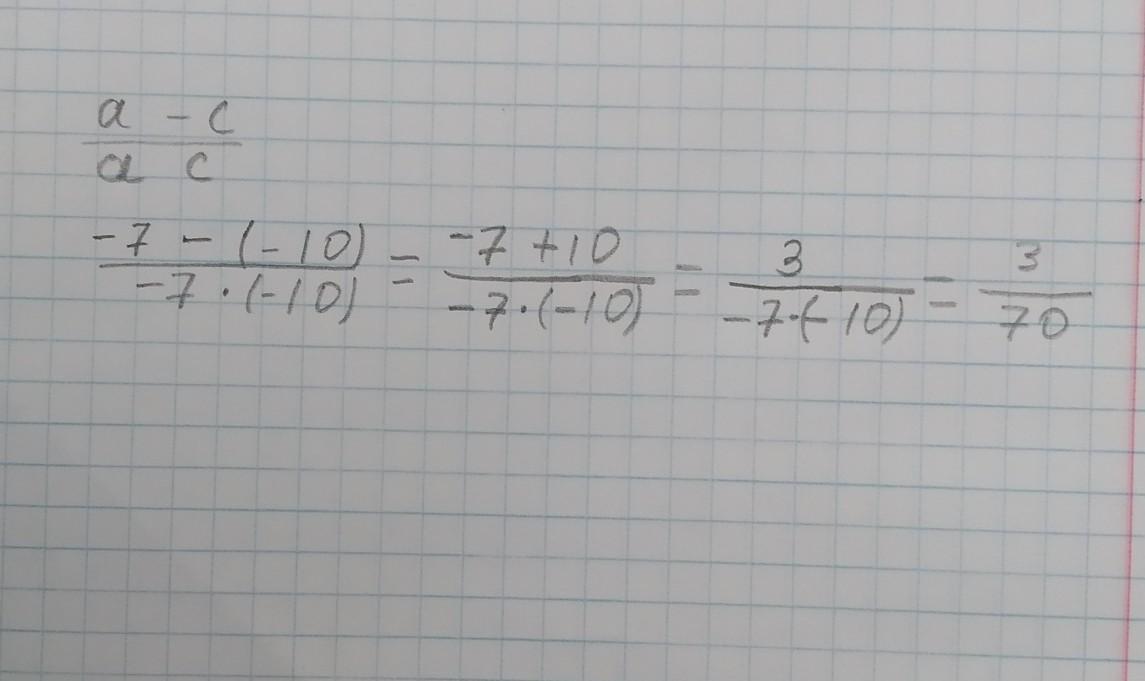 a - c
a c
-7 - (-10) = -7 + 10 = 3 = 3
-7 · (-10) -7 · (-10) -7 · (-10) 70